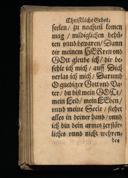 Christliche Gebet.
seelen / zu nachteil komen
mag / mildiglichen behü-
ten vnnd bewaren / Dann
dir meinem HERrn vnd
GOtt glaube ich / dir be-
fehle ich mich / auff Dich
verlas ich mich / Darumb
O gnediger Gott vnd Va-
ter / du bist mein GOtt /
mein Leib / mein Leben /
vnnd meine Seele / stehet
alles in deiner hand / vnnd
ich bin dein armes
vnnd nicht